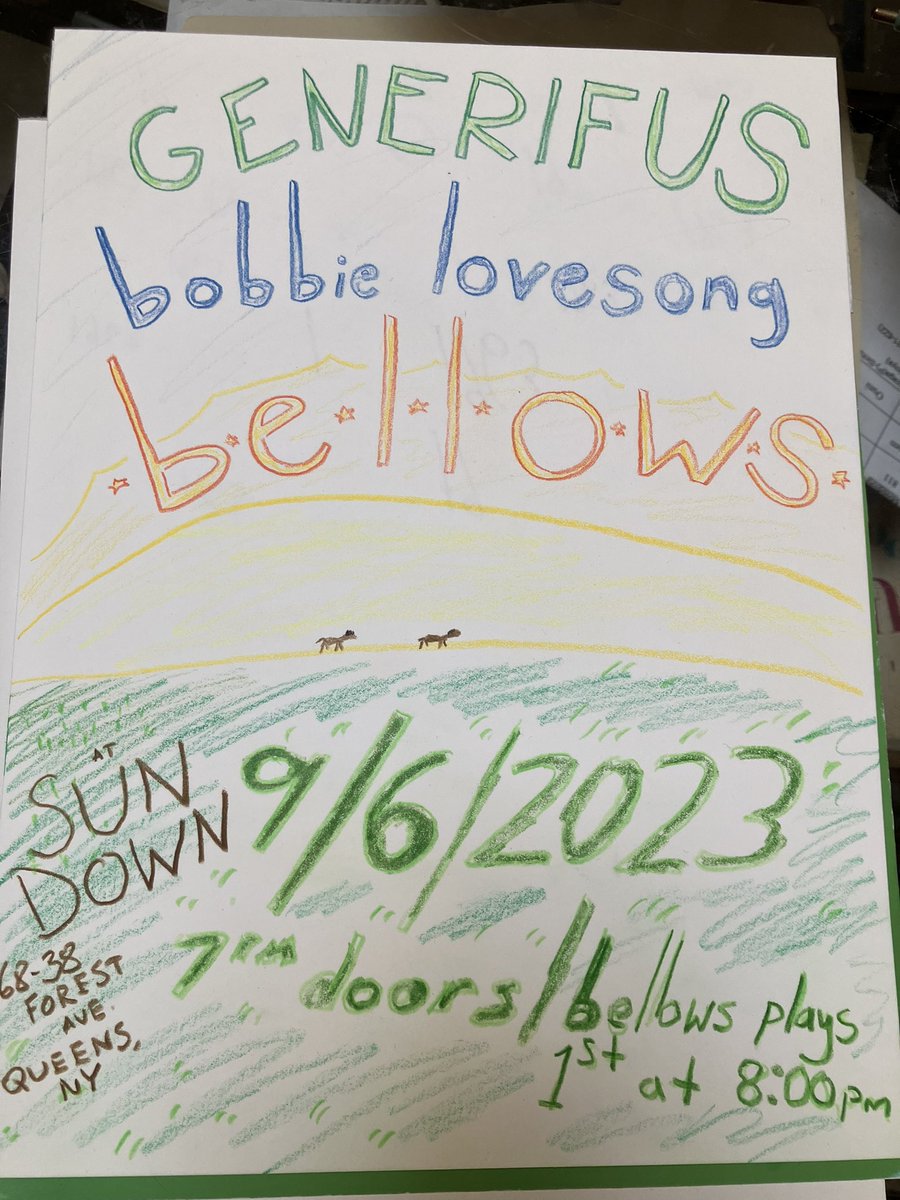 GENERIFUS
bobbie lovesong
b·e·l·l·o·w·s
AT
SUN
DOWN
68-38
FOREST
AVE.
QUEENS,
NY
9/6/2023
7PM doors/bellows plays
1st at 8:00pm